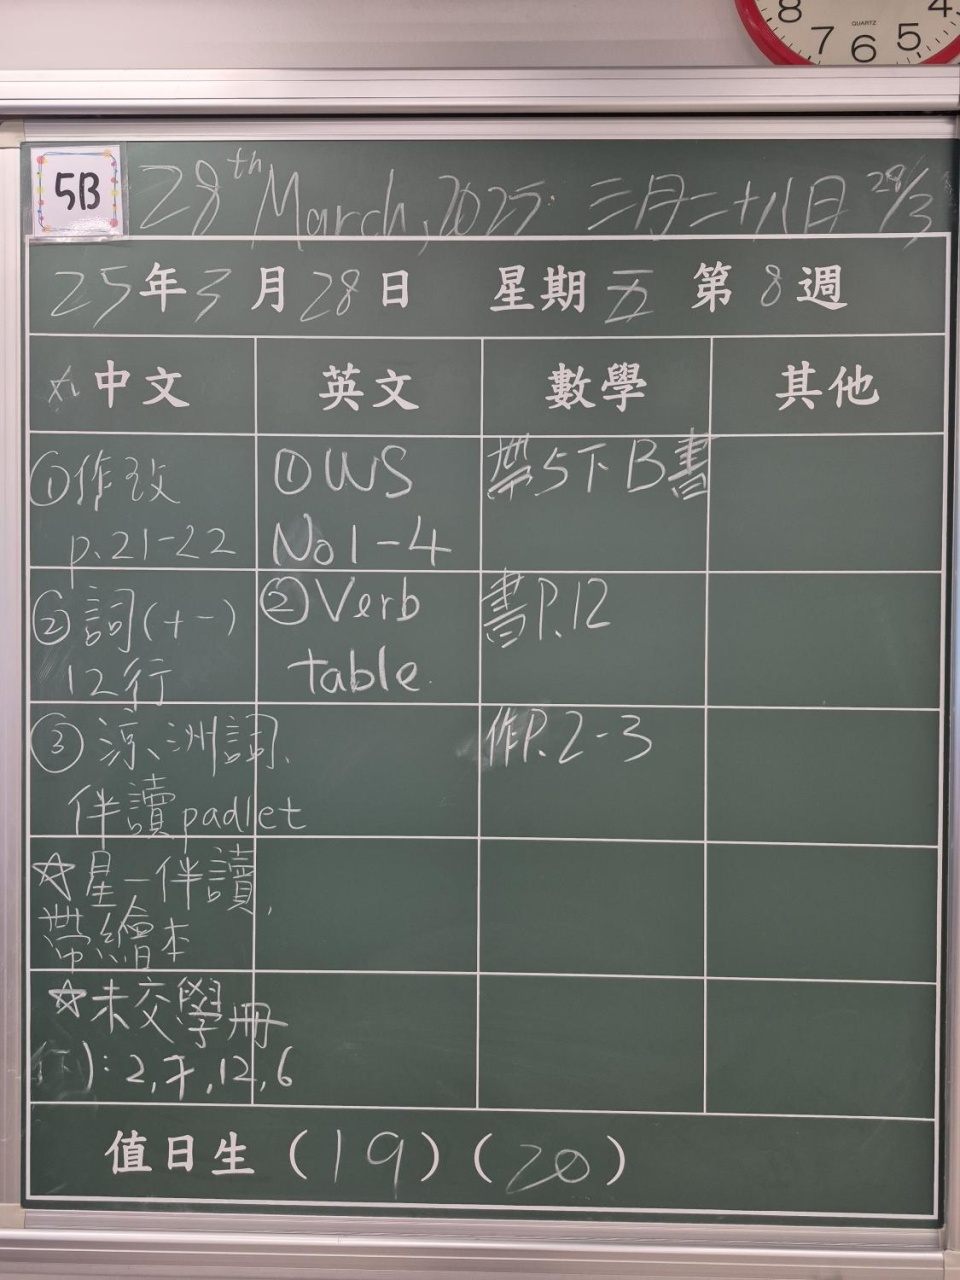 8 7 6 5 4
QUARTZ
5B
28th March, 2025. 三月二十八日 28/3
25年3月28日 星期五 第8週
中文 英文 數學 其他
①作改
p.21-22
②詞(十一)
12行
③涼洲詞、
伴讀padlet
☆星一伴讀,
帶繪本
☆未交學冊
): 2, 7, 12, 6
①WS
No1-4
②Verb
table
帶5下B書
書P.12
作P.2-3
值日生(19)(20)